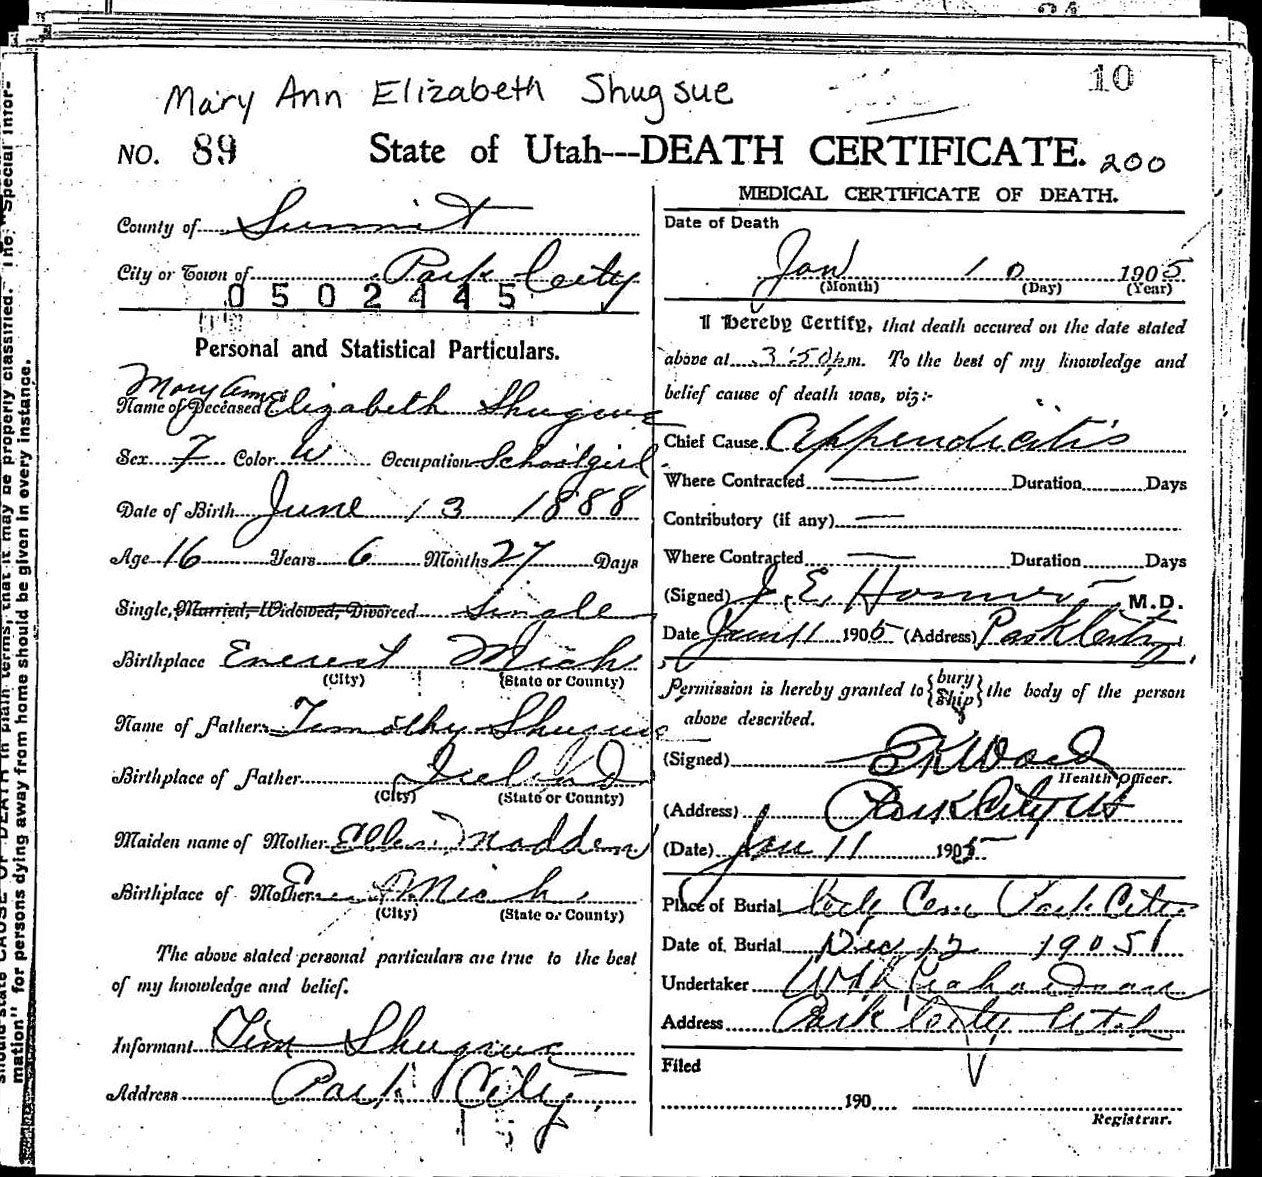 10
Mary Ann Elizabeth Shugsue
NO. 89 State of Utah---DEATH CERTIFICATE. 200
County of Summit
City or Town of Park City
0502445
Personal and Statistical Particulars.
Mary Ann
Name of Deceased Elizabeth Shugrue
Sex F Color W Occupation Schoolgirl
Date of Birth June 13 1888
Age 16 Years 6 Months 27 Days
Single, Married, Widowed, Divorced Single
Birthplace Mich
(City) (State or County)
Name of Father Timothy Shugrue
Birthplace of Father Ireland
(City) (State or County)
Maiden name of Mother Ellen Madden
Birthplace of Mother Mich
(City) (State or County)
The above stated personal particulars are true to the best
of my knowledge and belief.
Informant Tim Shugrue
Address Park City
MEDICAL CERTIFICATE OF DEATH.
Date of Death
Jan 10 1905
(Month) (Day) (Year)
I Hereby Certify, that death occured on the date stated
above at 3:50 p.m. To the best of my knowledge and
belief cause of death was, viz:-
Chief Cause Appendicitis
Where Contracted — Duration Days
Contributory (if any) —
Where Contracted — Duration Days
(Signed) J. E. M.D.
Date Jan 11 1905 (Address) Park City
Permission is hereby granted to {bury ship} the body of the person
above described.
(Signed) Ward
Health Officer.
(Address) Park City Ut
(Date) Jan 11 1905
Place of Burial City Cem Park City
Date of Burial Dec 12 1905
Undertaker
Address Park City Utah
Filed
190
Registrar.
mation" for persons dying away from home should be given in every instance.
should state CAUSE OF DEATH in plain terms, that it may be properly classified. The "Special Infor-